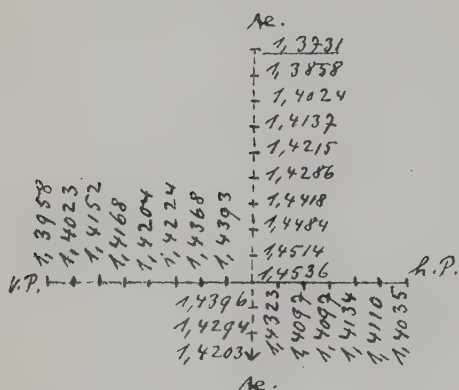 Ae.
1,3731
1,3858
1,4024
1,4137
1,4215
1,4286
1,4418
1,4484
1,4514
1,4536
1,3958
1,4023
1,4152
1,4168
1,4204
1,4224
1,4368
1,4393
v.P.
h.P.
1,4396
1,4294
1,4203
1,4323
1,4097
1,4097
1,4134
1,4110
1,4035
Ae.